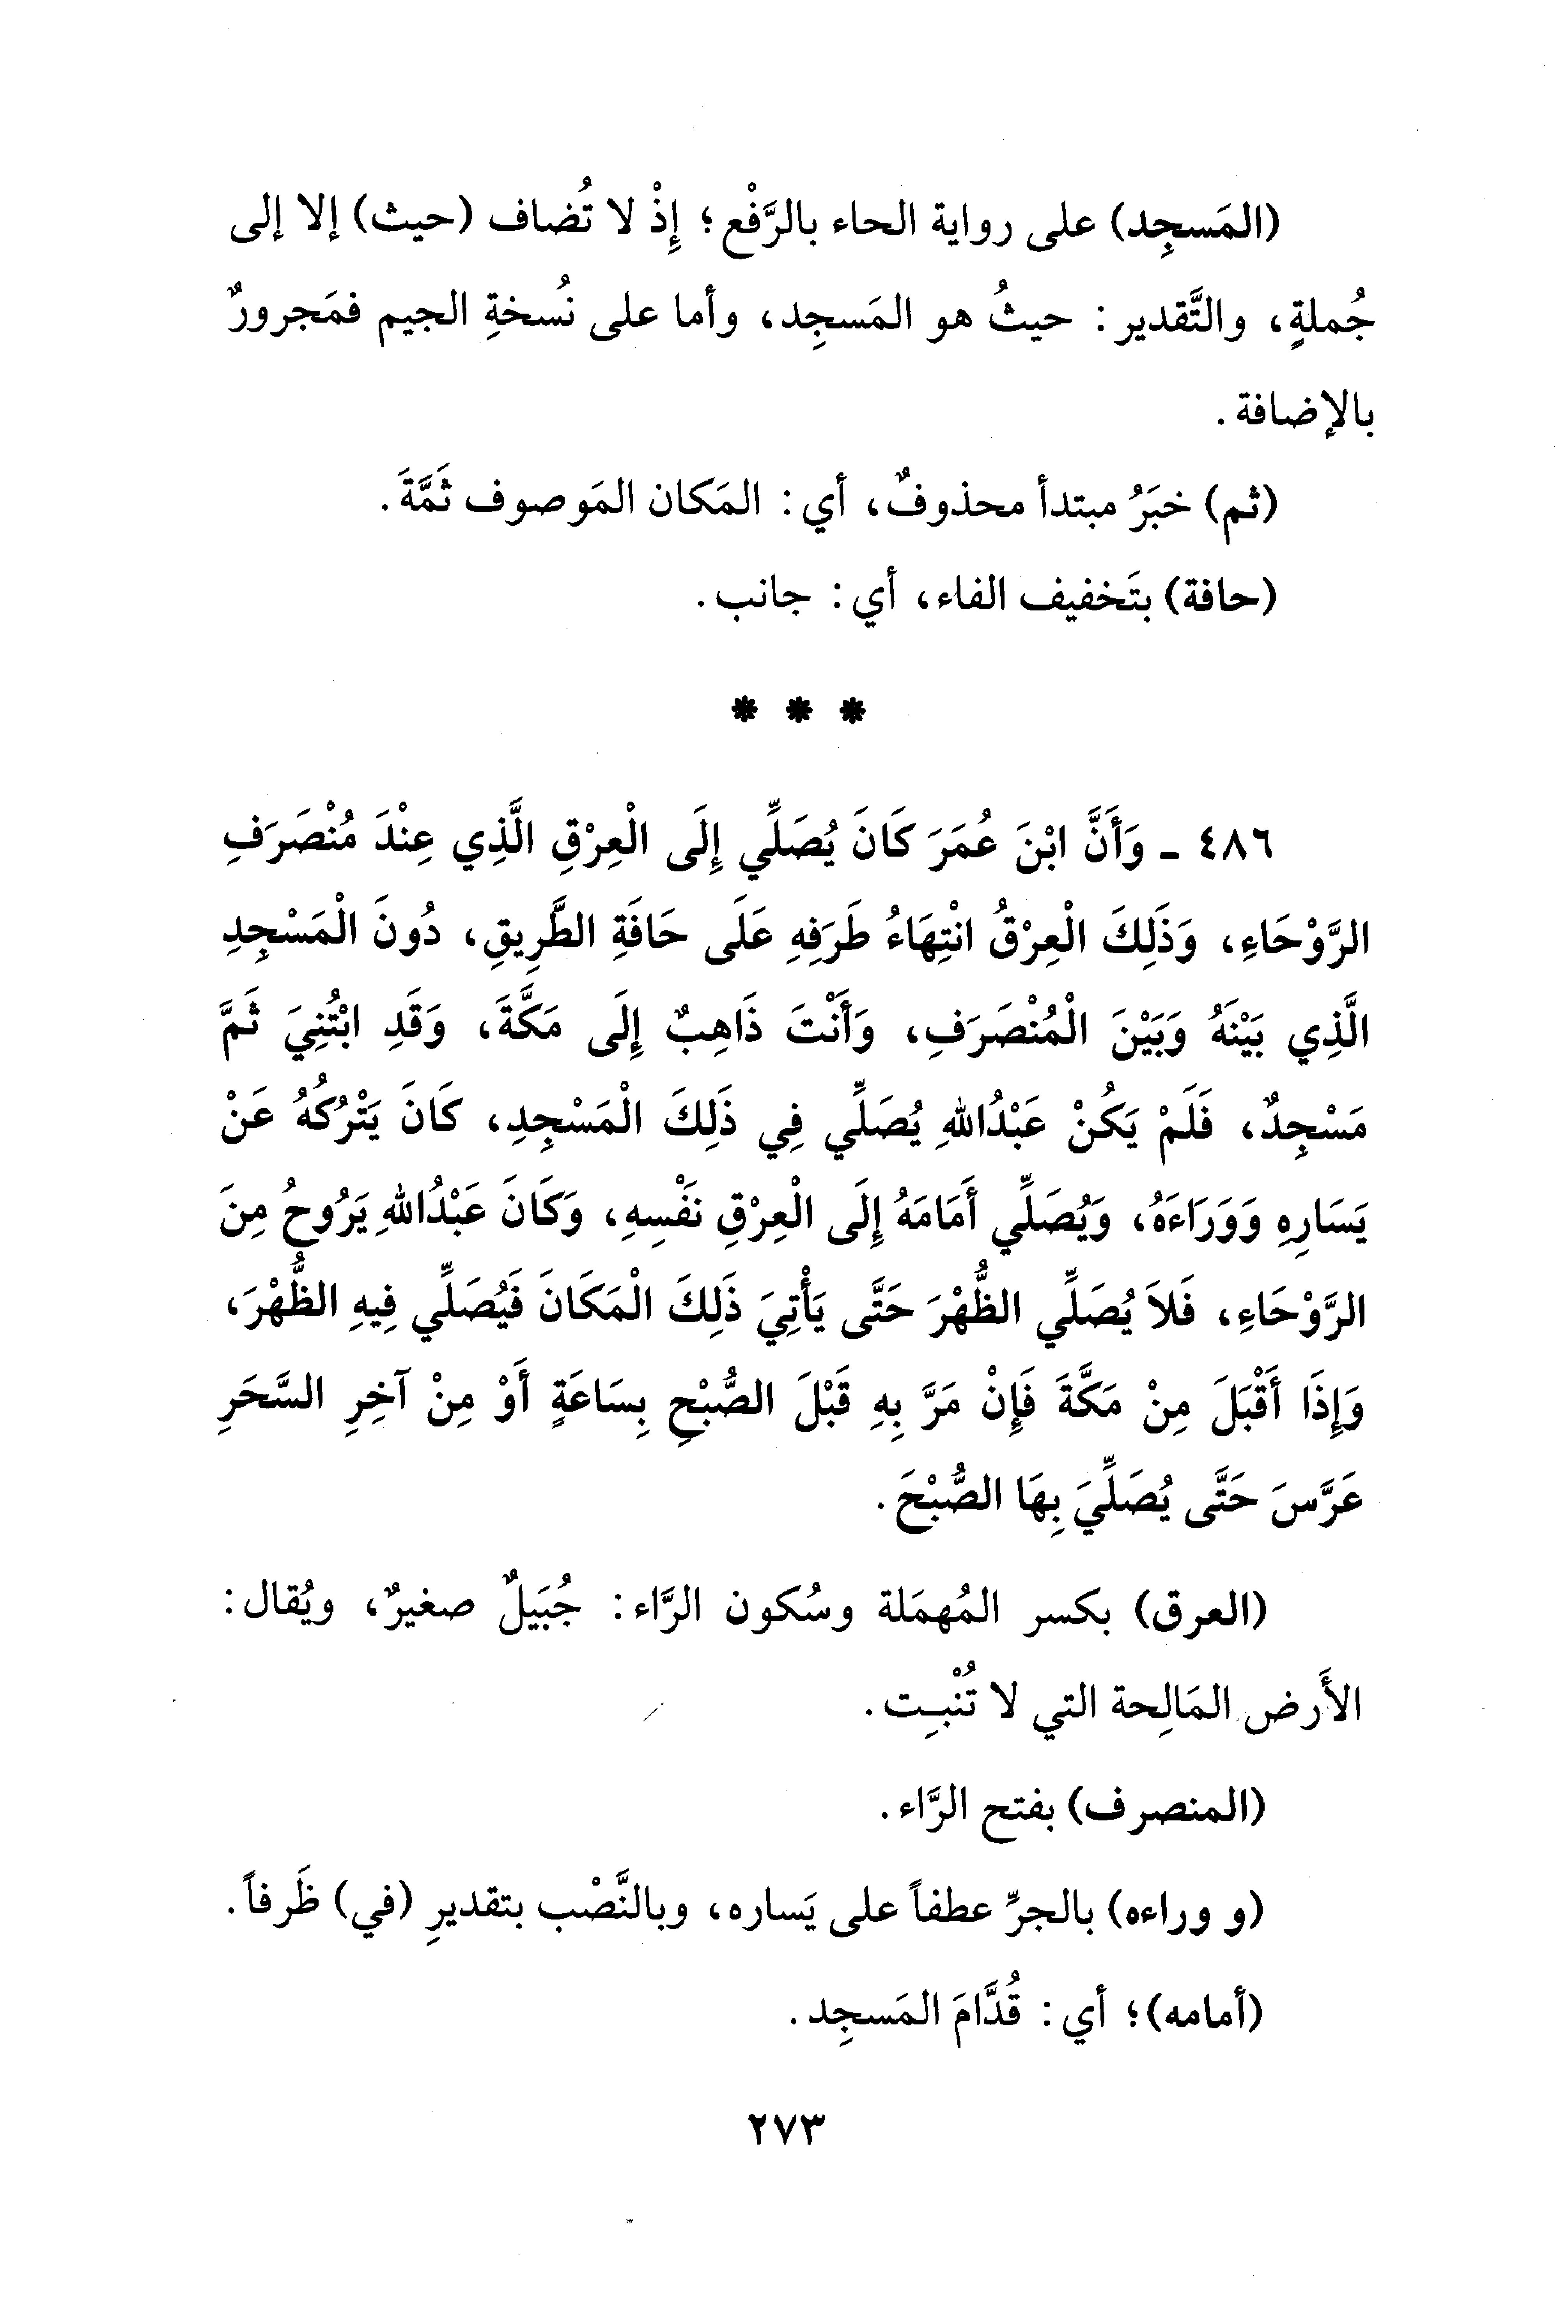 (المَسجِد) على رواية الحاء بالرَّفْع؛ إِذْ لا تُضاف (حيث) إلا إلى
جُملةٍ، والتَّقدير: حيثُ هو المَسجِد، وأما على نُسخةِ الجيم فمَجرورٌ
بالإضافة.
(ثم) خبَرُ مبتدأ محذوفٌ، أي: المَكان المَوصوف ثَمَّةَ.
(حافة) بتَخفيف الفاء، أي: جانب.
* * *
٤٨٦ ـ وَأَنَّ ابْنَ عُمَرَ كَانَ يُصَلِّي إِلَى الْعِرْقِ الَّذِي عِنْدَ مُنْصَرَفِ
الرَّوْحَاءِ، وَذَلِكَ الْعِرْقُ انْتِهَاءُ طَرَفِهِ عَلَى حَافَةِ الطَّرِيقِ، دُونَ الْمَسْجِدِ
الَّذِي بَيْنَهُ وَبَيْنَ الْمُنْصَرَفِ، وَأَنْتَ ذَاهِبٌ إِلَى مَكَّةَ، وَقَدِ ابْتُنِيَ ثَمَّ
مَسْجِدٌ، فَلَمْ يَكُنْ عَبْدُاللهِ يُصَلِّي فِي ذَلِكَ الْمَسْجِدِ، كَانَ يَتْرُكُهُ عَنْ
يَسَارِهِ وَوَرَاءَهُ، وَيُصَلِّي أَمَامَهُ إِلَى الْعِرْقِ نَفْسِهِ، وَكَانَ عَبْدُاللهِ يَرُوحُ مِنَ
الرَّوْحَاءِ، فَلاَ يُصَلِّي الظُّهْرَ حَتَّى يَأْتِيَ ذَلِكَ الْمَكَانَ فَيُصَلِّي فِيهِ الظُّهْرَ،
وَإِذَا أَقْبَلَ مِنْ مَكَّةَ فَإِنْ مَرَّ بِهِ قَبْلَ الصُّبْحِ بِسَاعَةٍ أَوْ مِنْ آخِرِ السَّحَرِ
عَرَّسَ حَتَّى يُصَلِّيَ بِهَا الصُّبْحَ.
(العرق) بكسر المُهمَلة وسُكون الرَّاء: جُبَيلٌ صغيرٌ، ويُقال:
الأَرض المَالِحة التي لا تُنْبِت.
(المنصرف) بفتح الرَّاء.
(و وراءه) بالجرِّ عطفاً على يَساره، وبالنَّصْب بتقديرِ (في) ظَرفاً.
(أمامه)؛ أي: قُدَّامَ المَسجِد.
٢٧٣